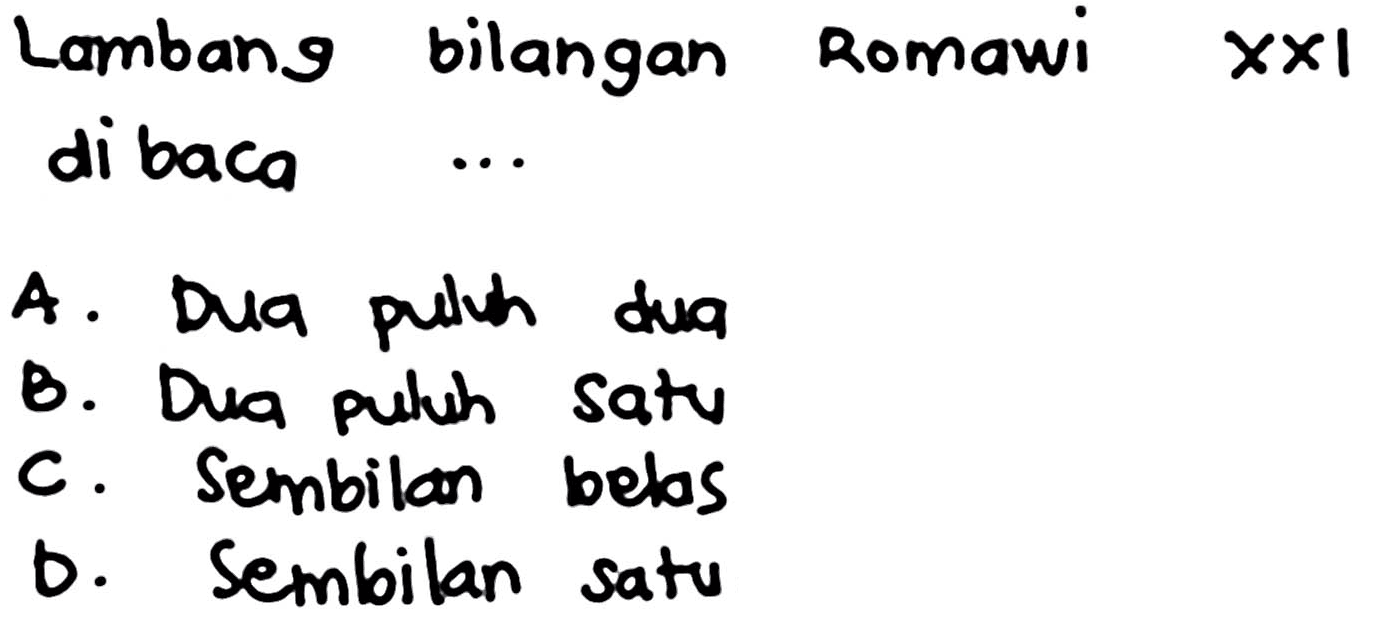 Lambang bilangan Romawi XXI
di baca ...
A. Dua puluh dua
B. Dua puluh satu
C. Sembilan belas
D. Sembilan satu